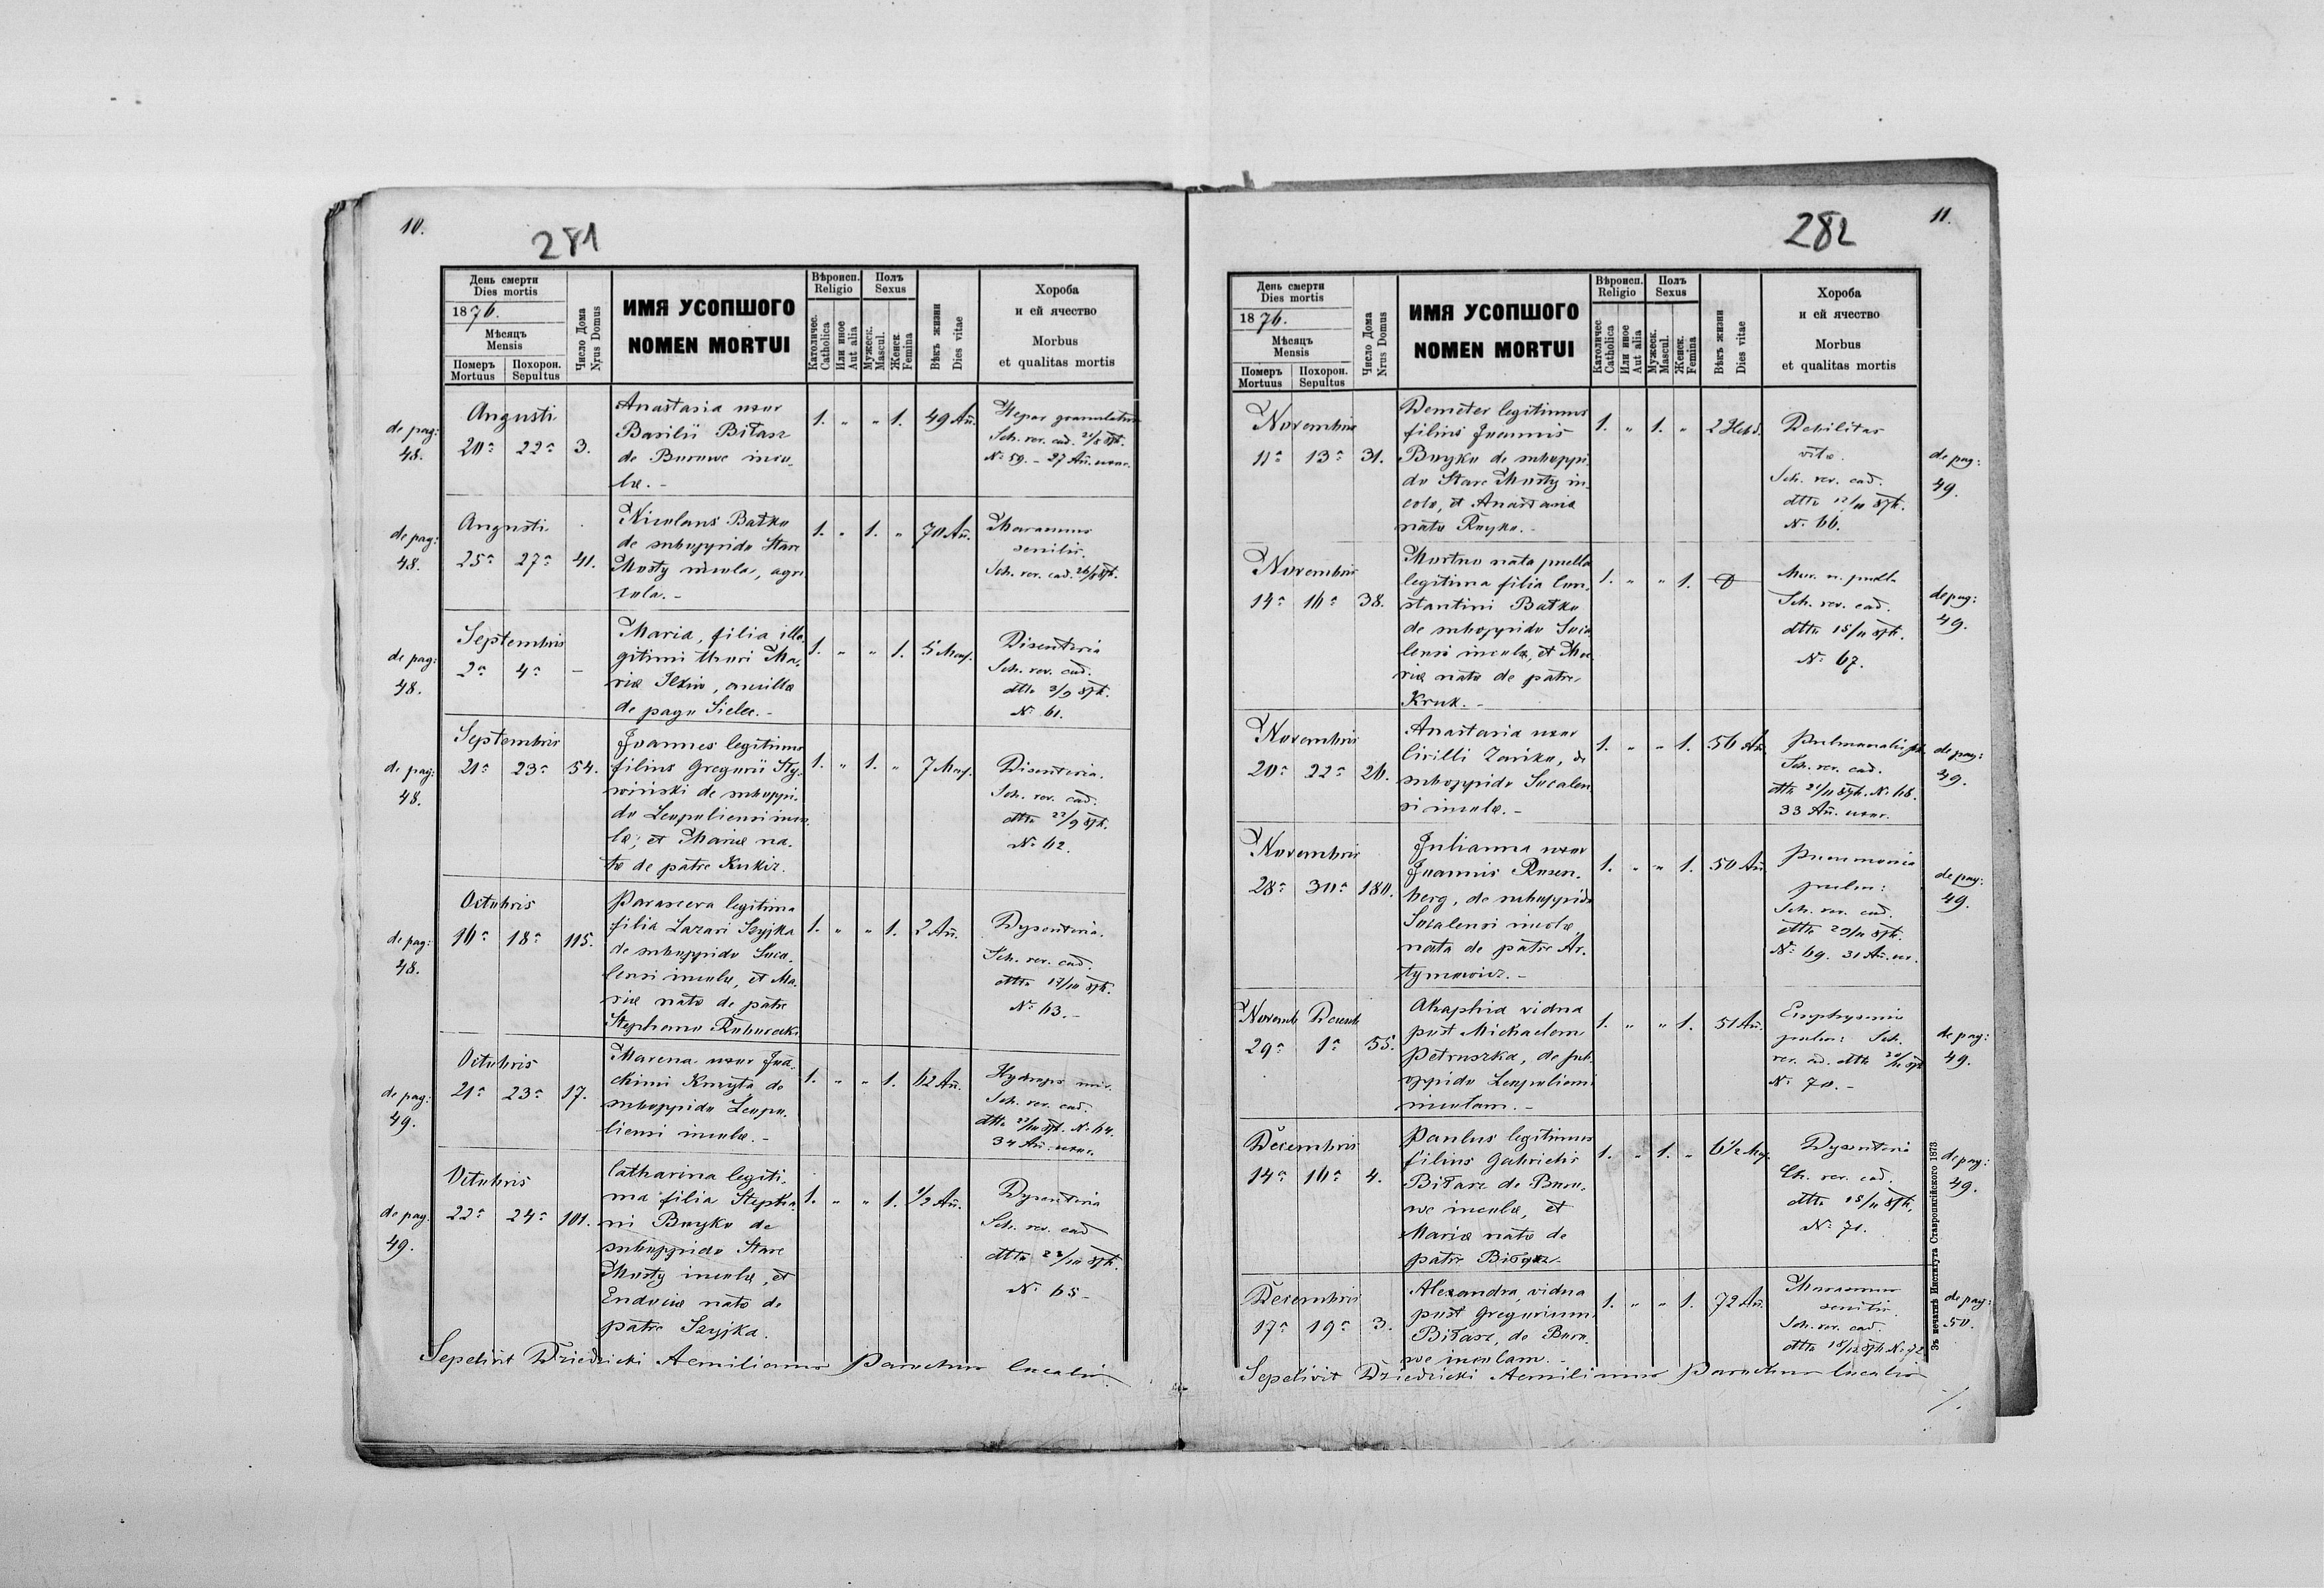 10.
281
День смерти
Dies mortis
1876.
Мѣсяць
Mensis
Померъ
Mortuus
Похорон.
Sepultus
Число Дома
Nrus Domus
ИМЯ УСОПШОГО
NOMEN MORTUI
Вѣроисп.
Religio
Католичес.
Catholica
Или иное
Aut alia
Полъ
Sexus
Мужеск.
Mascul.
Женск.
Femina
Вѣкъ жизни
Dies vitae
Хороба
и ей ячество
Morbus
et qualitas mortis
de pag:
48.
Augusti
20a 22a 3.
Anastasia uxor
Basilii Biłasz
de Borowe inco-
læ. -
1. " " 1. 49 Añ.
Hepar granulatum
Sch. rev. cad.
No 59. - 27 Añ. uxor.
de pag:
48.
Augusti
25a 27a 41.
Nicolaus Batko
de suboppido Stare
Mosty incola, agri
cola. -
1. " 1. " 70 Añ.
Marasmus
senilis.
Sch. rev. cad.
de pag:
48.
Septembris
2a 4a -
Maria, filia ille-
gitimi thori Ma-
riæ, ancillæ
de pago Sielec. -
1. " " 1. 5 Mens.
Disenteria
Sch. rev. cad.
dtto 3/9 876.
No 61.
de pag:
48.
Septembris
21a 23a 54.
Joannes legitimus
filius Gregorii Sty-
wiński de suboppi-
do Leopoliensi inco-
læ; et Mariæ na-
tæ de patre Kukiz.
1. " 1. " 7 Mens.
Disenteria.
Sch. rev. cad.
dtto 22/9 876.
No 62.
de pag:
48.
Octobris
16a 18a 115.
Parascera legitima
filia Lazari Szyjka
de suboppido Soca-
lensi incolæ, et Ma-
riæ natæ de patre
Stephano
1. " " 1. 2 Añ.
Dysenteria.
Sch. rev. cad.
dtto 17/10 876.
No 63. -
de pag:
49.
Octobris
21a 23a 17.
Marena uxor Joa-
chimi Kmyta de
suboppido Leopo-
liensi incolæ. -
1. " " 1. 62 Añ.
Hydrops
Sch. rev. cad.
dtto 22/10 876. No 64.
34 Añ. uxor.
de pag.
49.
Octobris
22a 24a 101.
Catharina legiti-
ma filia Stepha-
ni Boyko de
suboppido Stare
Mosty incolæ, et
Eudociæ natæ de
patre Szyjka.
1. " " 1. 1/2 Añ.
Dysenteria
Sch. rev. cad
dtto 23/10 876.
No 65-
Sepelivit Dziedzicki Aemilianus Parochus localis.
11.
282
День смерти
Dies mortis
1876.
Мѣсяць
Mensis
Померъ
Mortuus
Похорон.
Sepultus
Число Дома
Nrus Domus
ИМЯ УСОПШОГО
NOMEN MORTUI
Вѣроисп.
Religio
Католичес
Catholica
Или иное
Aut alia
Полъ
Sexus
Мужеск.
Mascul.
Женск.
Femina
Вѣкъ жизни
Dies vitae
Хороба
и ей ячество
Morbus
et qualitas mortis
Novembris
11a 13a 31.
Demeter legitimus
filius Joannis
Boyko de suboppi-
do Stare Mosty in-
colæ, et Anastasiæ
natæ Royko. -
1. " 1. " 2 Hebd.
Debilitas
vitæ.
Sch. rev. cad.
dtto 12/11 876.
No 66.
de pag:
49.
Novembris
14a 16a 38.
Mortuo nata puella
legitima filia Con-
stantini Batko
de suboppido Soca
lensi incolæ, et Ma-
riæ natæ de patre
Kruk. -
1. " " 1.
Mor. n. puella
Sch. rev. cad.
dtto 15/11 876.
No 67.
de pag:
49.
Novembris
20a 22a 26.
Anastasia uxor
Cirilli, de
suboppido Socalen
si incolæ. -
1. " " 1. 56 Añ.
Sch. rev. cad.
dtto 21/11 876. No 68.
33 Añ. uxor.
de pag:
49.
Novembris
28a 30a 180.
Julianna uxor
Joannis Rosen-
berg, de suboppido
Socalensi incolæ,
nata de patre Ar-
tymowicz. -
1. " " 1. 50 Añ
Pneumonia
pulm:
Sch. rev. cad.
dtto 29/11 876.
No 69. 31 Añ. ux.
de pag:
49.
Novemb Decemb
29a 1a 55.
Ahaphia vidua
post Michaelem
Petruszka, de sub-
oppido Leopoliensi
incolam. -
1. " " 1. 51 Añ.
Emphysema
pulm: Sch.
rev. cad. dtto 30/11 876
No 70. -
de pag:
49.
Decembris
14a 16a 4.
Paulus legitimus
filius Gabrielis
Biłasz de Boro-
we incolæ, et
Mariæ natæ de
patre
1. " 1. " 6 1/2 Mens.
Dysenteria
Ch. rev. cad.
dtto 15/11 876.
No 71.
de pag:
49.
Decembris
17a 19a 3.
Alexandra, vidua
post Gregorium
Biłasz, de Boro-
we incolam. -
1. " " 1. 72 Añ.
Marasmus
senilis
Sch. rev. cad.
dtto 18/12 876 No 72.
de pag:
50.
Sepelivit Dziedzicki Aemilianus Parochus localis
Зъ печатнѣ Института Ставропигійского 1873